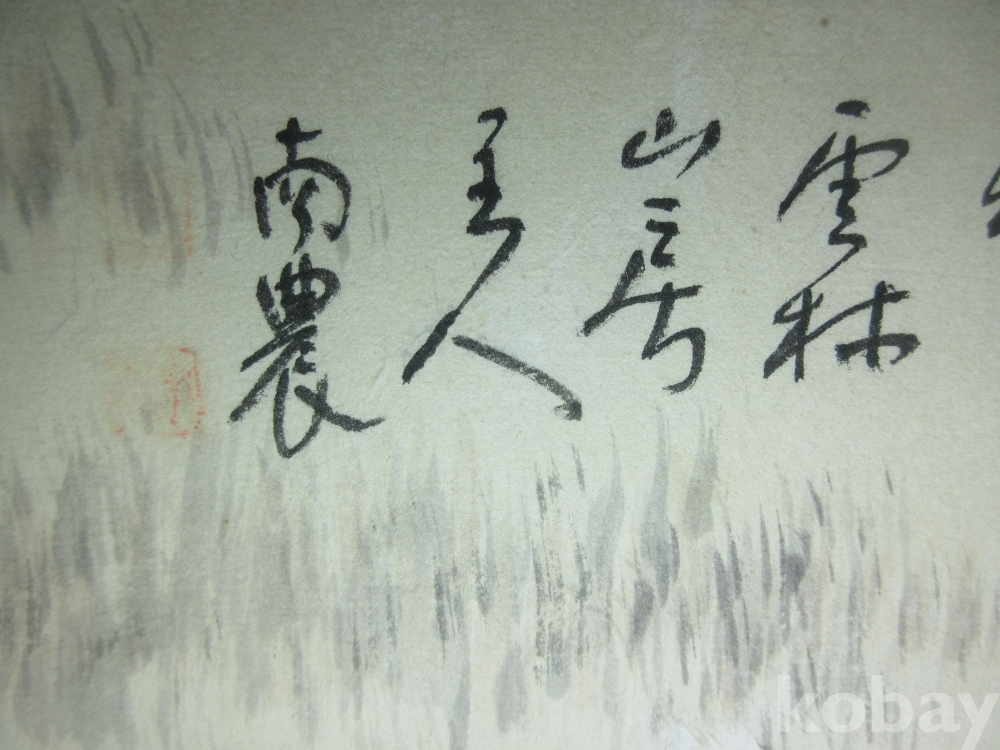 雲林
山房
主人
南農
kobay